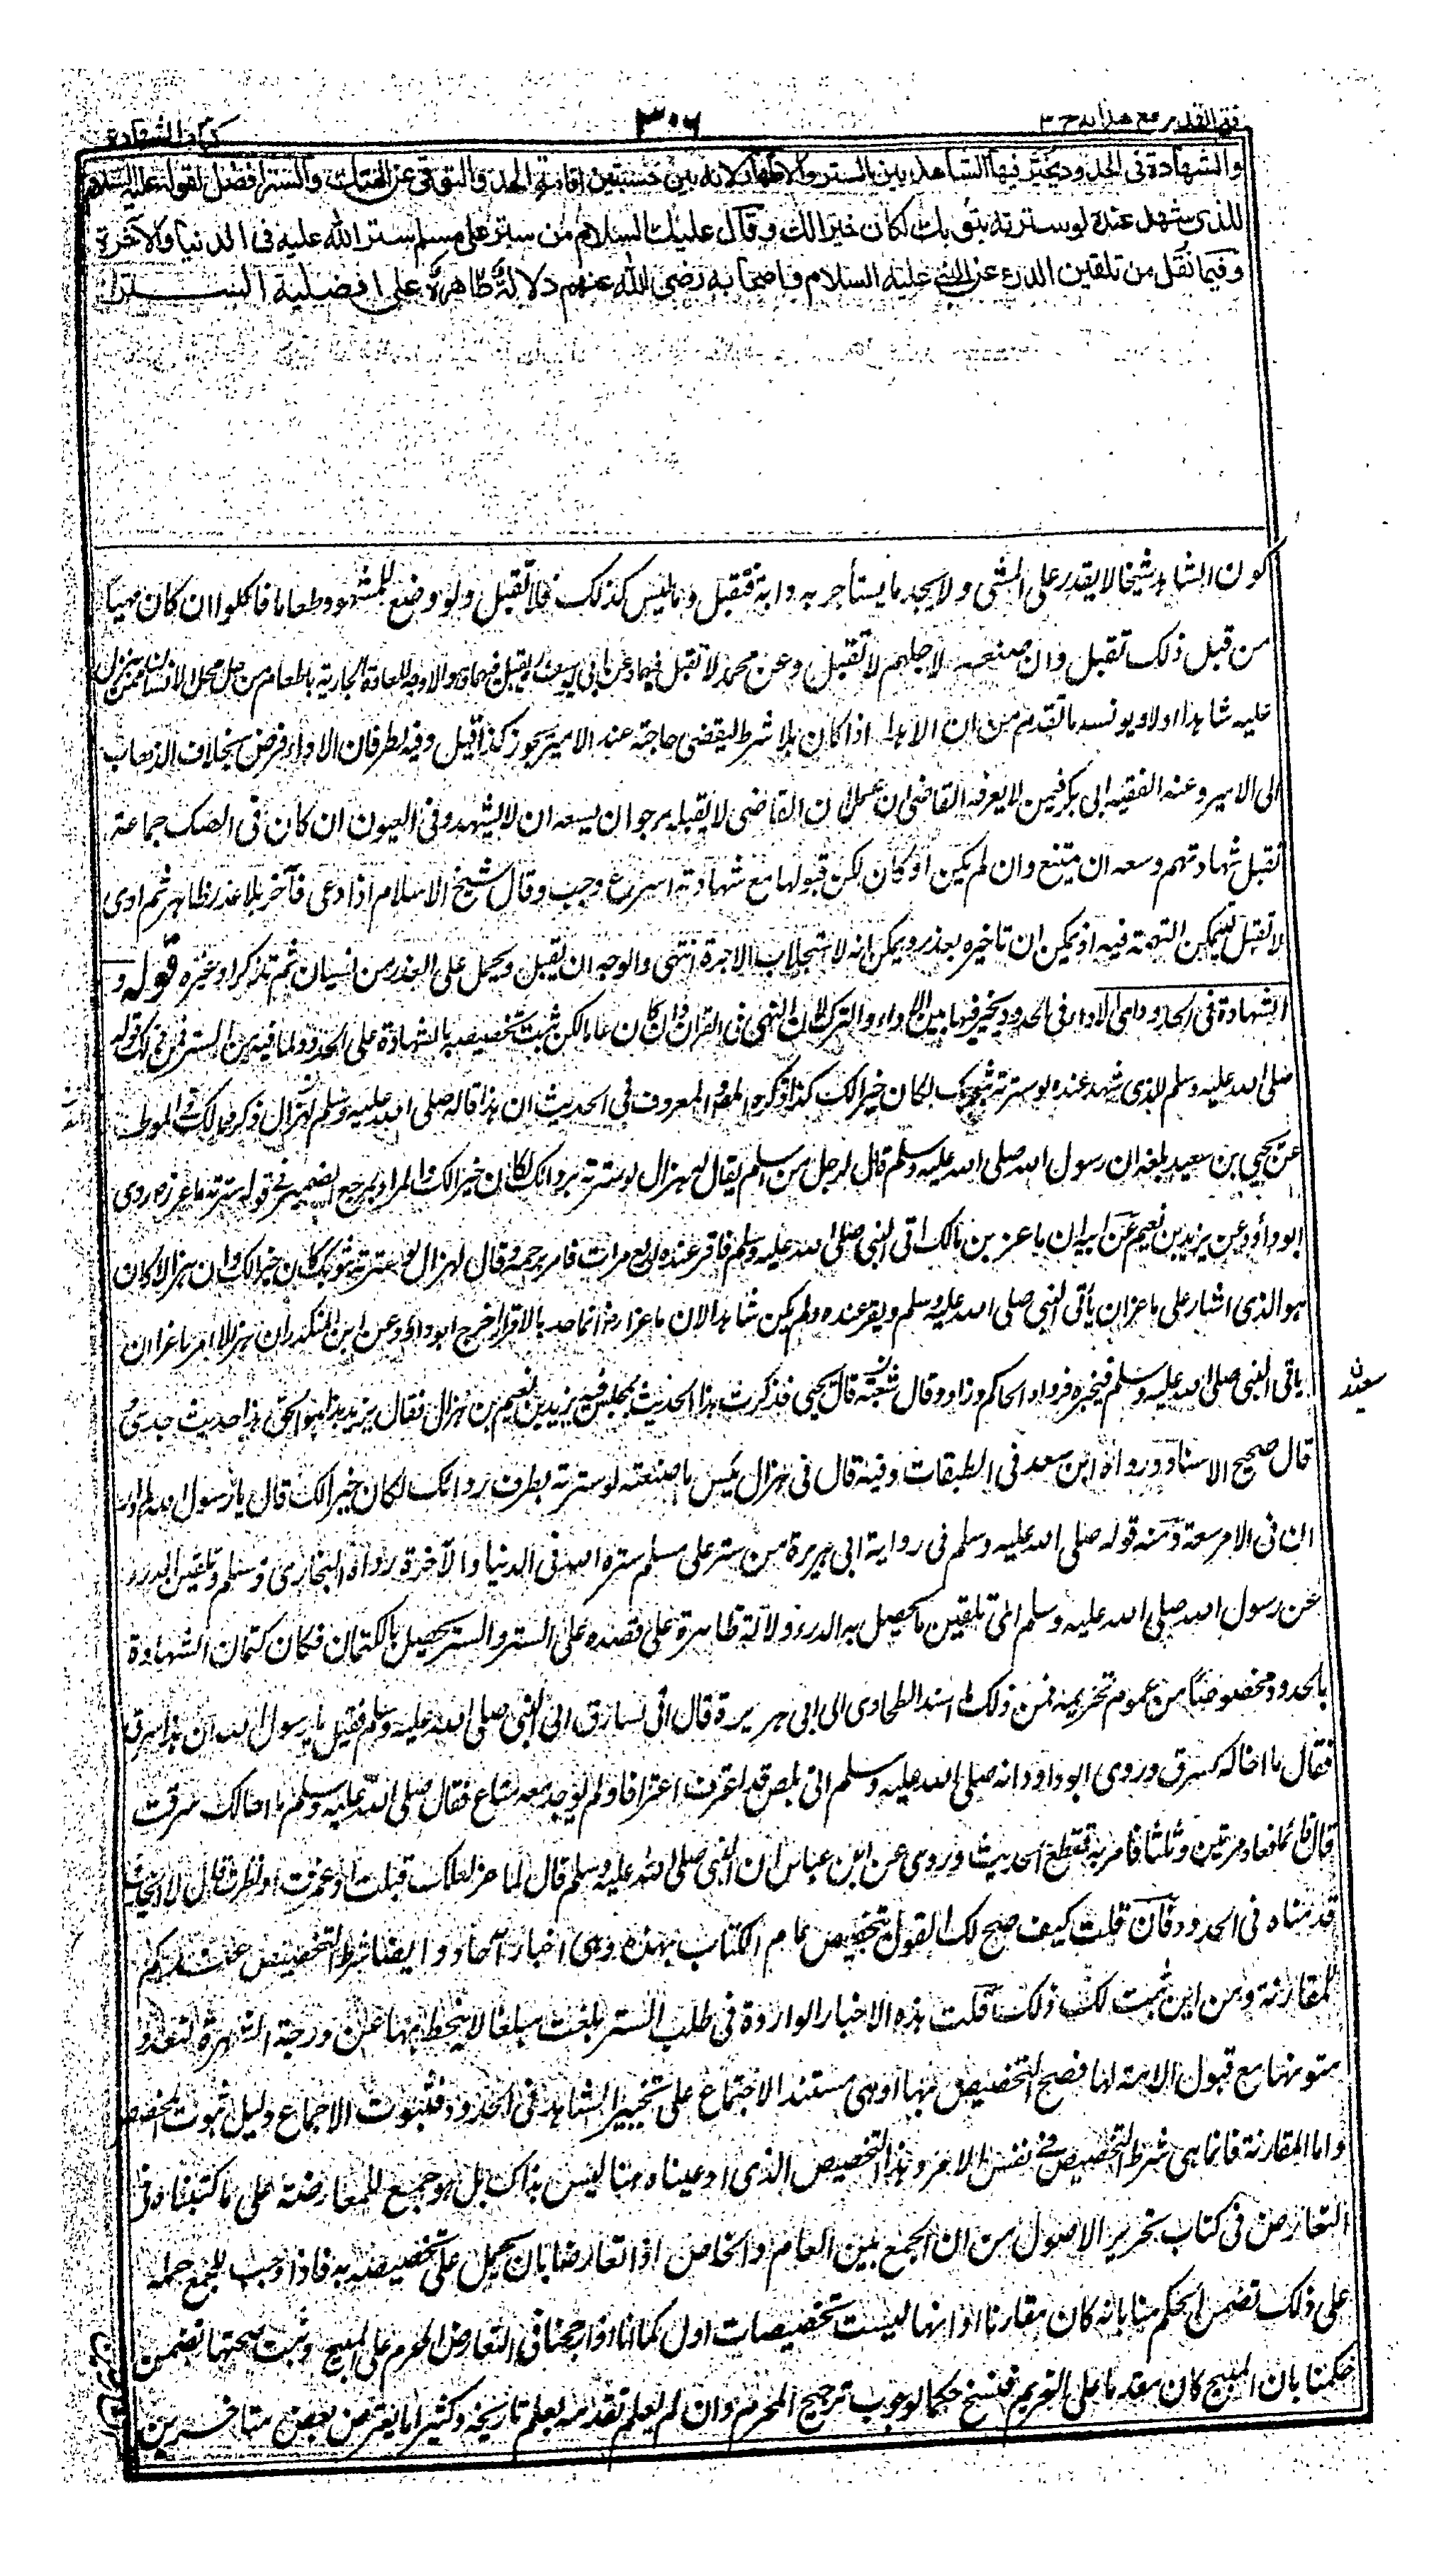 فتح القدير مع هدايه ج ٣
٣٠٦
كتاب الشهادة
والشهادة فى الحدود يخير فيها الشاهد بين الستر والاظهار لانه بين حسبتين اقامة الحد والتوقى عن الهتك والستر افضل لقوله عليه السلام
للذى شهد عنده لو سترته بثوبك لكان خيرا لك وقال عليه السلام من ستر على مسلم ستر الله عليه فى الدنيا والآخرة
وفيما نقل من تلقين الدرء عن النبى عليه السلام واصحابه رضى الله عنهم دلالة ظاهرة على افضلية الستر
كون الشاهد شيخا لا يقدر على المشى ولا يجد ما يستأجر به دابة فتقبل وما ليس كذلك فلا تقبل ولو وضع للشهود طعاما فاكلوا ان كان مهيأ
من قبل ذلك تقبل وان صنعه لاجلهم لا تقبل وعن محمد لا تقبل فيهما وعن ابى يوسف تقبل فيهما وهو الاوجه للعادة الجارية باطعام من حل محل الانسان ممن يعز
عليه شاهدا اولا ويؤنسه ما تقدم من ان الاهداء اذا كان بلا شرط ليقضى حاجته عند الامير يجوز كذا قيل وفيه نظر فان الاداء فرض بخلاف الذهاب
الى الامير وعند الفقيه ابى بكر فيمن لا يعرفه القاضى ان علم ان القاضى لا يقبله يرجو ان يسعه ان لا يشهد وفى العيون ان كان فى الصك جماعة
تقبل شهادتهم وسعه ان يمتنع وان لم يكن او كان لكن قبولها مع شهادته اسرع وجب وقال شيخ الاسلام اذا دعى فآخر بلا عذر ظاهر ثم ادى
لا تقبل لتمكن التهمة فيه اذ يمكن ان تاخيره بعذر ويمكن انه لاستجلاب الاجرة انتهى والوجه ان يقبل ويحمل على العذر من نسيان ثم تذكر او غيره قوله و
الشهادة فى الحدود اى الاداء فى الحدود يخير فيها بين الاداء والترك لان النهى فى القرآن وان كان عاما لكن ثبت تخصيصه بالشهادة على الحدود لما فيه من الستر فمن ذلك قوله
صلى الله عليه وسلم للذى شهد عنده لو سترته بثوبك لكان خيرا لك كذا ذكره المصنف والمعروف فى الحديث ان هذا قاله صلى الله عليه وسلم لهزال ذكر مالك فى الموطأ
عن يحيى بن سعيد بلغه ان رسول الله صلى الله عليه وسلم قال لرجل من اسلم يقال له هزال لو سترته بردائك لكان خيرا لك والمراد بمرجع الضمير فى قوله سترته ماعز ده روى
ابوداؤد عن يزيد بن نعيم عن ابيه ان ماعز بن مالك اتى النبى صلى الله عليه وسلم فاقر عنده اربع مرات فامر برجمه وقال لهزال لو سترته بثوبك كان خيرا لك وان هزالا كان
هو الذى اشار على ماعز ان يأتى النبى صلى الله عليه وسلم ويقر عنده ولم يكن شاهدا لان ماعزا رض انما حد بالاقرار اخرج ابوداؤد عن ابن المنكدر ان هزالا امر ماعزا ان
ياتى النبى صلى الله عليه وسلم فيخبره ورواه الحاكم وزاد وقال شعبة قال يحيى فذكرت هذا الحديث بمجلس فيه يزيد بن نعيم بن هزال فقال يزيد هذا هو الحق هذا حديث جدى و
سعيد ن
قال صحيح الاسناد ورواه ابن سعد فى الطبقات وفيه قال فى هزال بئس ما صنعته لو سترته بطرف ردائك لكان خيرا لك قال يا رسول الله لم ادر
ان فى الامر سعة ومنه قوله صلى الله عليه وسلم فى رواية ابى هريرة من ستر على مسلم ستره الله فى الدنيا والآخرة رواه البخارى ومسلم وتلقين الدرء
عن رسول الله صلى الله عليه وسلم اى تلقين ما يحصل به الدرء دلالة ظاهرة على قصده على الستر والستر يحصل بالكتمان فكان كتمان الشهادة
بالحدود مخصوصا من عموم تحريمه فمن ذلك ما اسند الطحاوى الى ابى هريرة قال اتى بسارق الى النبى صلى الله عليه وسلم فقيل يا رسول الله ان هذا سرق
فقال ما اخاله سرق وروى ابو داود انه صلى الله عليه وسلم اتى بلص قد اعترف اعترافا ولم يوجد معه متاع فقال صلى الله عليه وسلم ما اخالك سرقت
قال فاعاد مرتين وثلثا فامر به فقطع الحديث وروى عن ابن عباس ان النبى صلى الله عليه وسلم قال لماعز لعلك قبلت او غمزت او نظرت قال لا الحديث
قدمناه فى الحدود فان قلت كيف صح لك القول بتخصيص عام الكتاب بهذه وهى اخبار آحاد وايضا شرط التخصيص عندكم
المقارنة ومن اين ثبت لك ذلك قلت هذه الاخبار الواردة فى طلب الستر بلغت مبلغا لا ينحط بها عن درجة الشهرة لتعدد
متونها مع قبول الامة لها فصح التخصيص بها او هى مستند الاجتماع على تخيير الشاهد فى الحدود فثبوت الاجماع دليل ثبوت المخصص
واما المقارنة فانما هى شرط التخصيص فى نفس الامر وهذا التخصيص الذى ادعيناه هنا ليس بذاك بل هو جمع للمعارضة على ما كتبناه فى
التعارض فى كتاب تحرير الاصول من ان الجمع بين العام والخاص اذا تعارضا بان يحمل على تخصيصه به فاذا وجب للجمع حمله
على ذلك تضمن الحكم منا بانه كان مقارنا او انها ليست تخصيصات اول كما انا اذا رجحنا فى التعارض المحرم على المبيح وثبت صحتها تضمن
حكمنا بان المبيح كان مقدما على التحريم فنسخ حكما لوجوب ترجيح المحرم وان لم يعلم تقدمه بعلم تاريخه وكثيرا ما يعترض بعض متأخرين